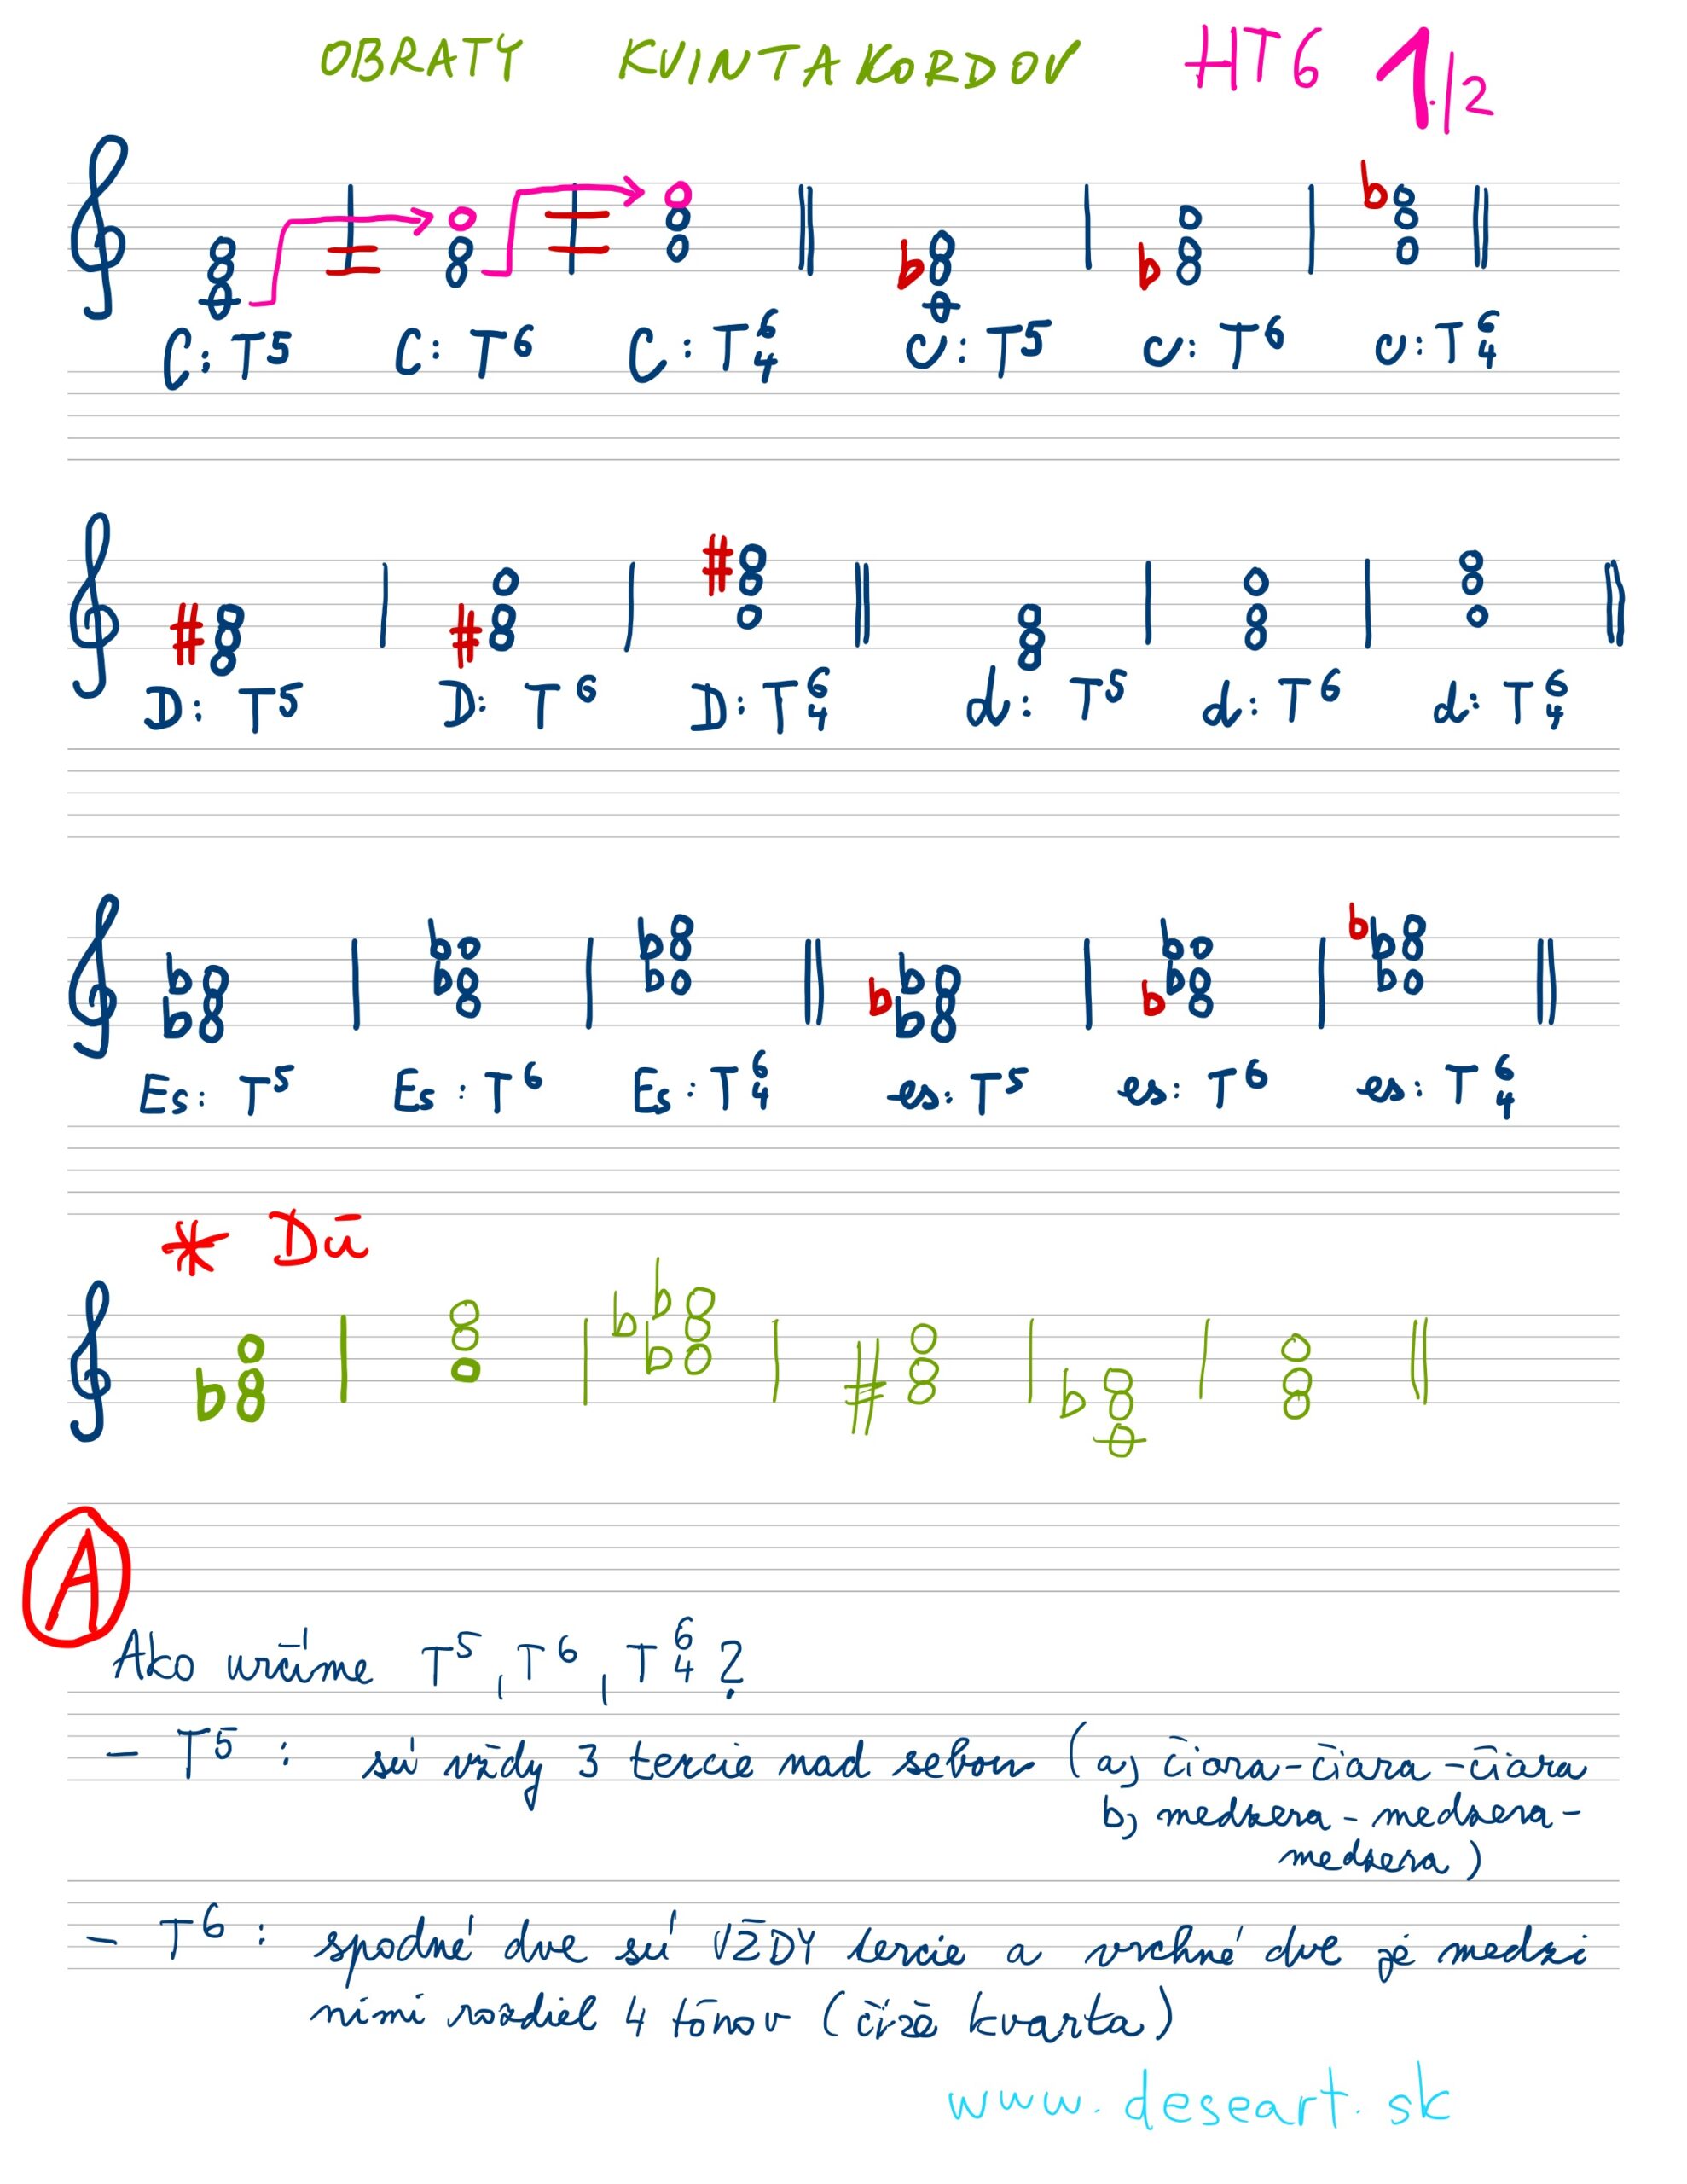 OBRATY KVINTAKORDOV HT6 1./2
C: T5 C: T6 C: T64 c: T5 c: T6 c: T64
D: T5 D: T6 D: T64 d: T5 d: T6 d: T64
Es: T5 Es: T6 Es: T64 es: T5 es: T6 es: T64
* Dú
A
Ako určíme T5, T6, T64?
- T5: sú vždy 3 tercie nad sebou (a) čiara-čiara-čiara
b) medzera - medzera -
medzera)
- T6: spodné dve sú VŽDY tercie a vrchné dve je medzi
nimi rozdiel 4 tónov (čiže kvarta)
www.deseart.sk